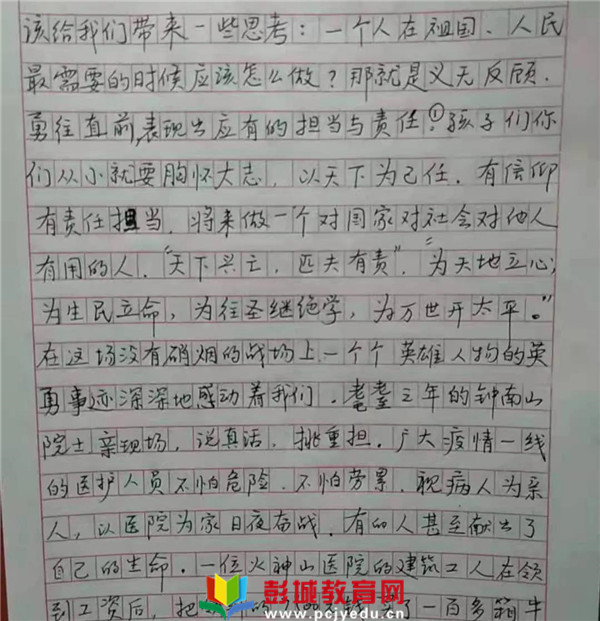 该给我们带来一些思考：一个人在祖国、人民
最需要的时候应该怎么做？那就是义无反顾.
勇往直前,表现出应有的担当与责任①！孩子们你
们从小就要胸怀大志，以天下为己任．有信仰
有责任担当，将来做一个对国家对社会对他人
有用的人．“天下兴亡，匹夫有责”．“为天地立心;
为生民立命，为往圣继绝学，为万世开太平。”
在这场没有硝烟的战场上,一个个英雄人物的英
勇事迹深深地感动着我们．耄耋之年的钟南山
院士亲现场，说真话，挑重担．广大疫情一线
的医护人员不怕危险．不怕劳累．视病人为亲
人，以医院为家日夜奋战．有的人甚至献出了
自己的生命．一位火神山医院的建筑工人在领
到工资后，把 的 了一百多箱牛
彭城教育网
www.pcjyedu.cn